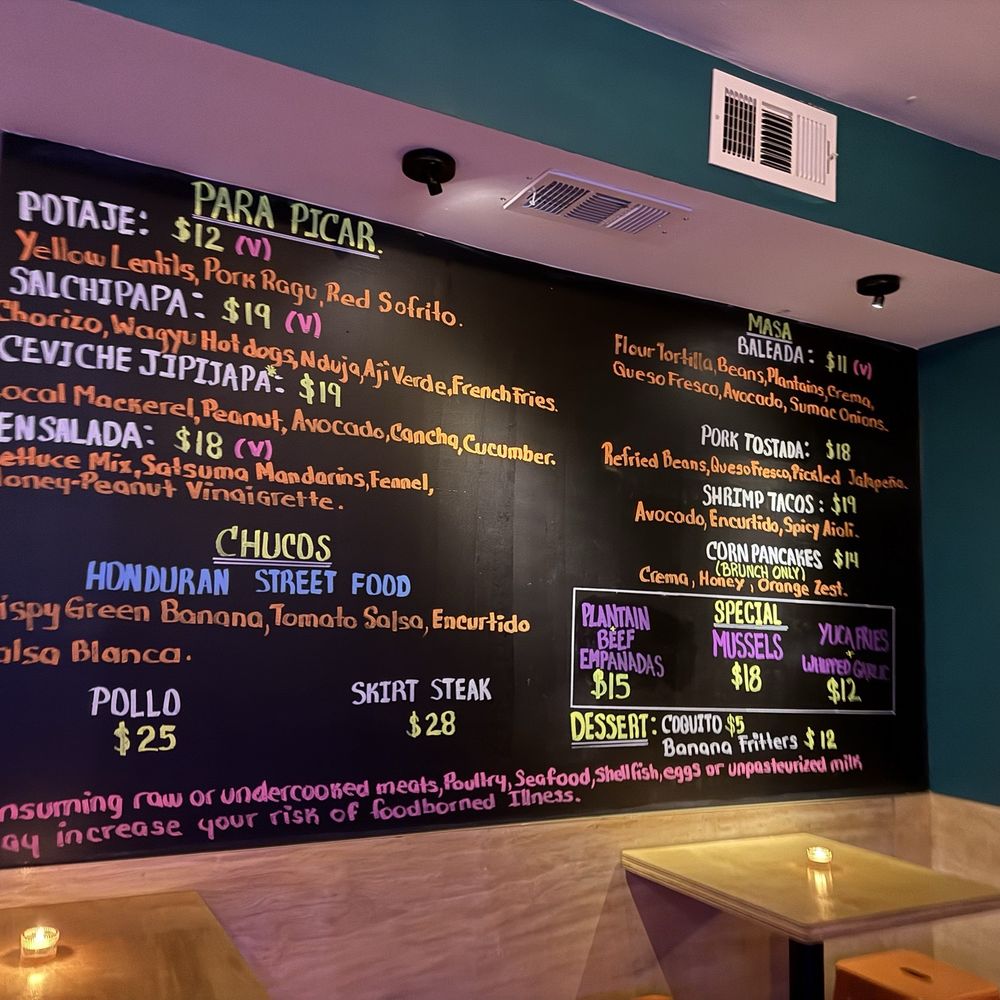 PARA PICAR.
POTAJE: $12 (V)
Yellow Lentils, Pork Ragu, Red Sofrito.
SALCHIPAPA: $19 (V)
Chorizo, Wagyu Hotdogs, Nduja, Aji Verde, French Fries.
CEVICHE JIPIJAPA*: $19
Local Mackerel, Peanut, Avocado, Cancha, Cucumber.
ENSALADA: $18 (V)
Lettuce Mix, Satsuma Mandarins, Fennel,
Honey-Peanut Vinaigrette.
CHUCOS
HONDURAN STREET FOOD
ispy Green Banana, Tomato Salsa, Encurtido
alsa Blanca.
POLLO
$25
SKIRT STEAK
$28
MASA
BALEADA: $11 (V)
Flour Tortilla, Beans, Plantains, Crema,
Queso Fresco, Avocado, Sumac Onions.
PORK TOSTADA: $18
Refried Beans, Queso Fresco, Pickled Jalapeña.
SHRIMP TACOS: $19
Avocado, Encurtido, Spicy Aioli.
CORN PANCAKES $14
(BRUNCH ONLY)
Crema, Honey, Orange Zest.
SPECIAL
PLANTAIN
BEEF
EMPANADAS
$15
MUSSELS
$18
YUCA FRIES
+
WHIPPED GARLIC
$12
DESSERT: COQUITO $5
Banana Fritters $12
nsuming raw or undercooked meats, Poultry, Seafood, Shellfish, eggs or unpasteurized milk
ay increase your risk of foodborned Illness.